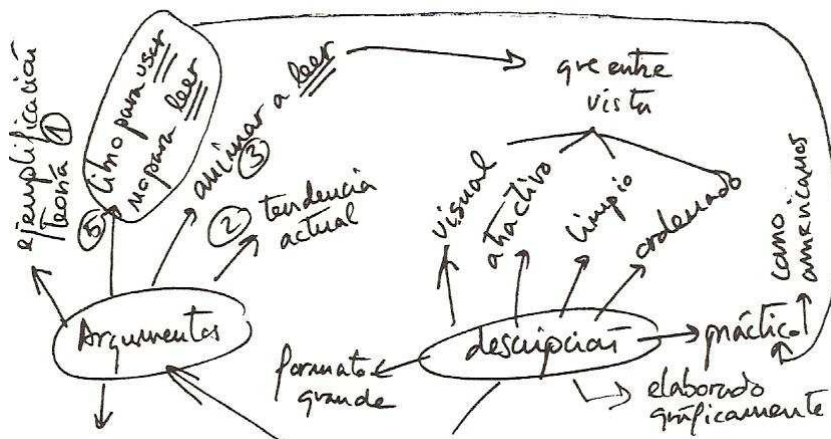 ejemplificación
teoría ①
⑤ libro para usar
no para leer
animar a leer
③
② tendencia
actual
Argumentos
que entre
vista
visual
atractivo
limpio
ordenado
como
americanos
descripción
práctico
formato
grande
elaborado
gráficamente